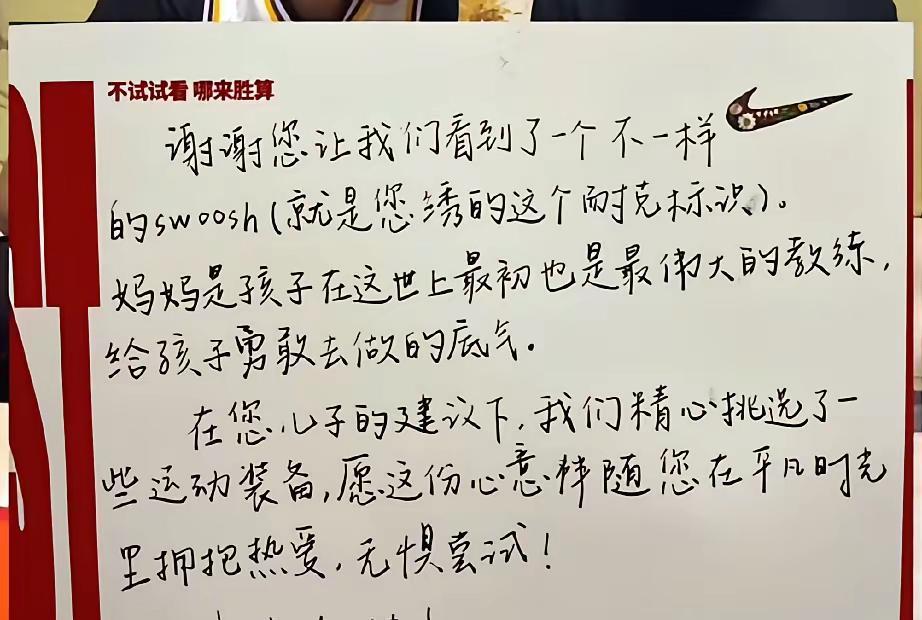 不试试看 哪来胜算
谢谢您让我们看到了一个不一样
的swoosh(就是您绣的这个耐克标识)。
妈妈是孩子在这世上最初也是最伟大的教练,
给孩子勇敢去做的底气。
在您儿子的建议下,我们精心挑选了一
些运动装备,愿这份心意伴随您在平凡时光
里拥抱热爱,无惧尝试!